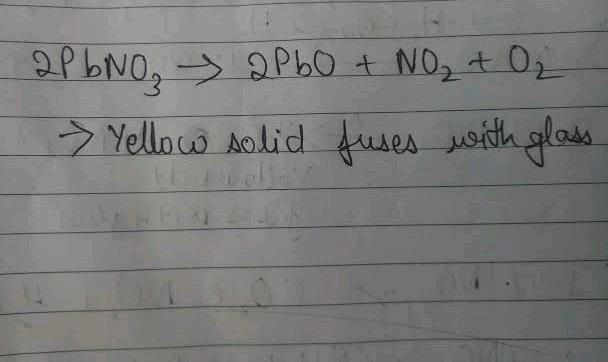 2PbNO₃ → 2PbO + NO₂ + O₂
→ Yellow solid fuses with glass